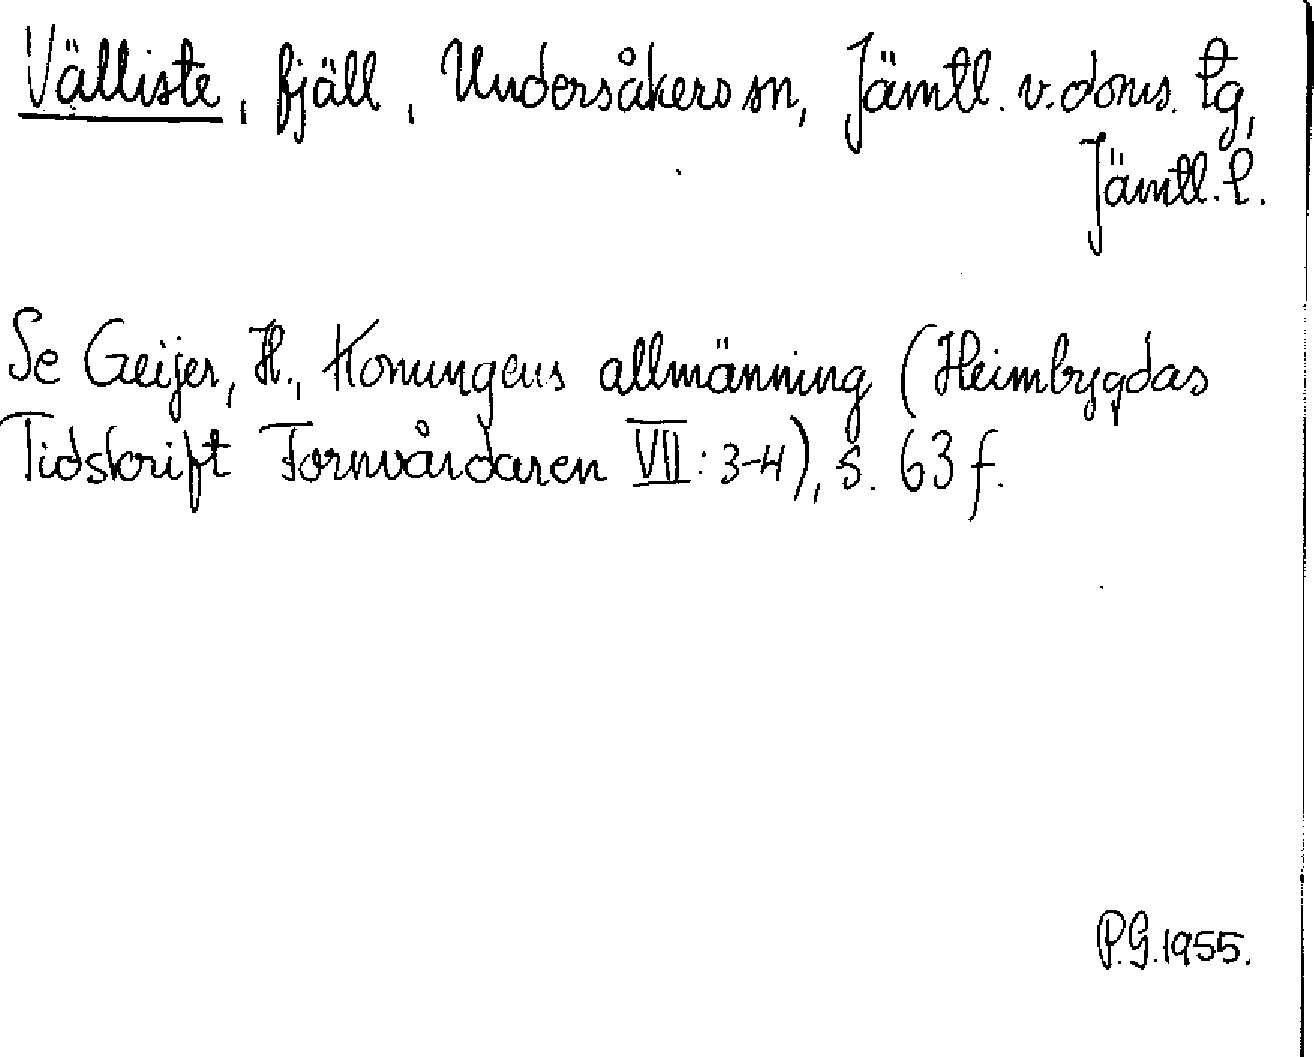 Välliste, fjäll, Undersåkers sn, Jämtl. v. doms. tg,
Jämtl. l.
Se Geijer, H., Konungens allmänning (Heimbygdas
Tidskrift Fornvårdaren VII: 3-4), s. 63 f.
P.G. 1955.